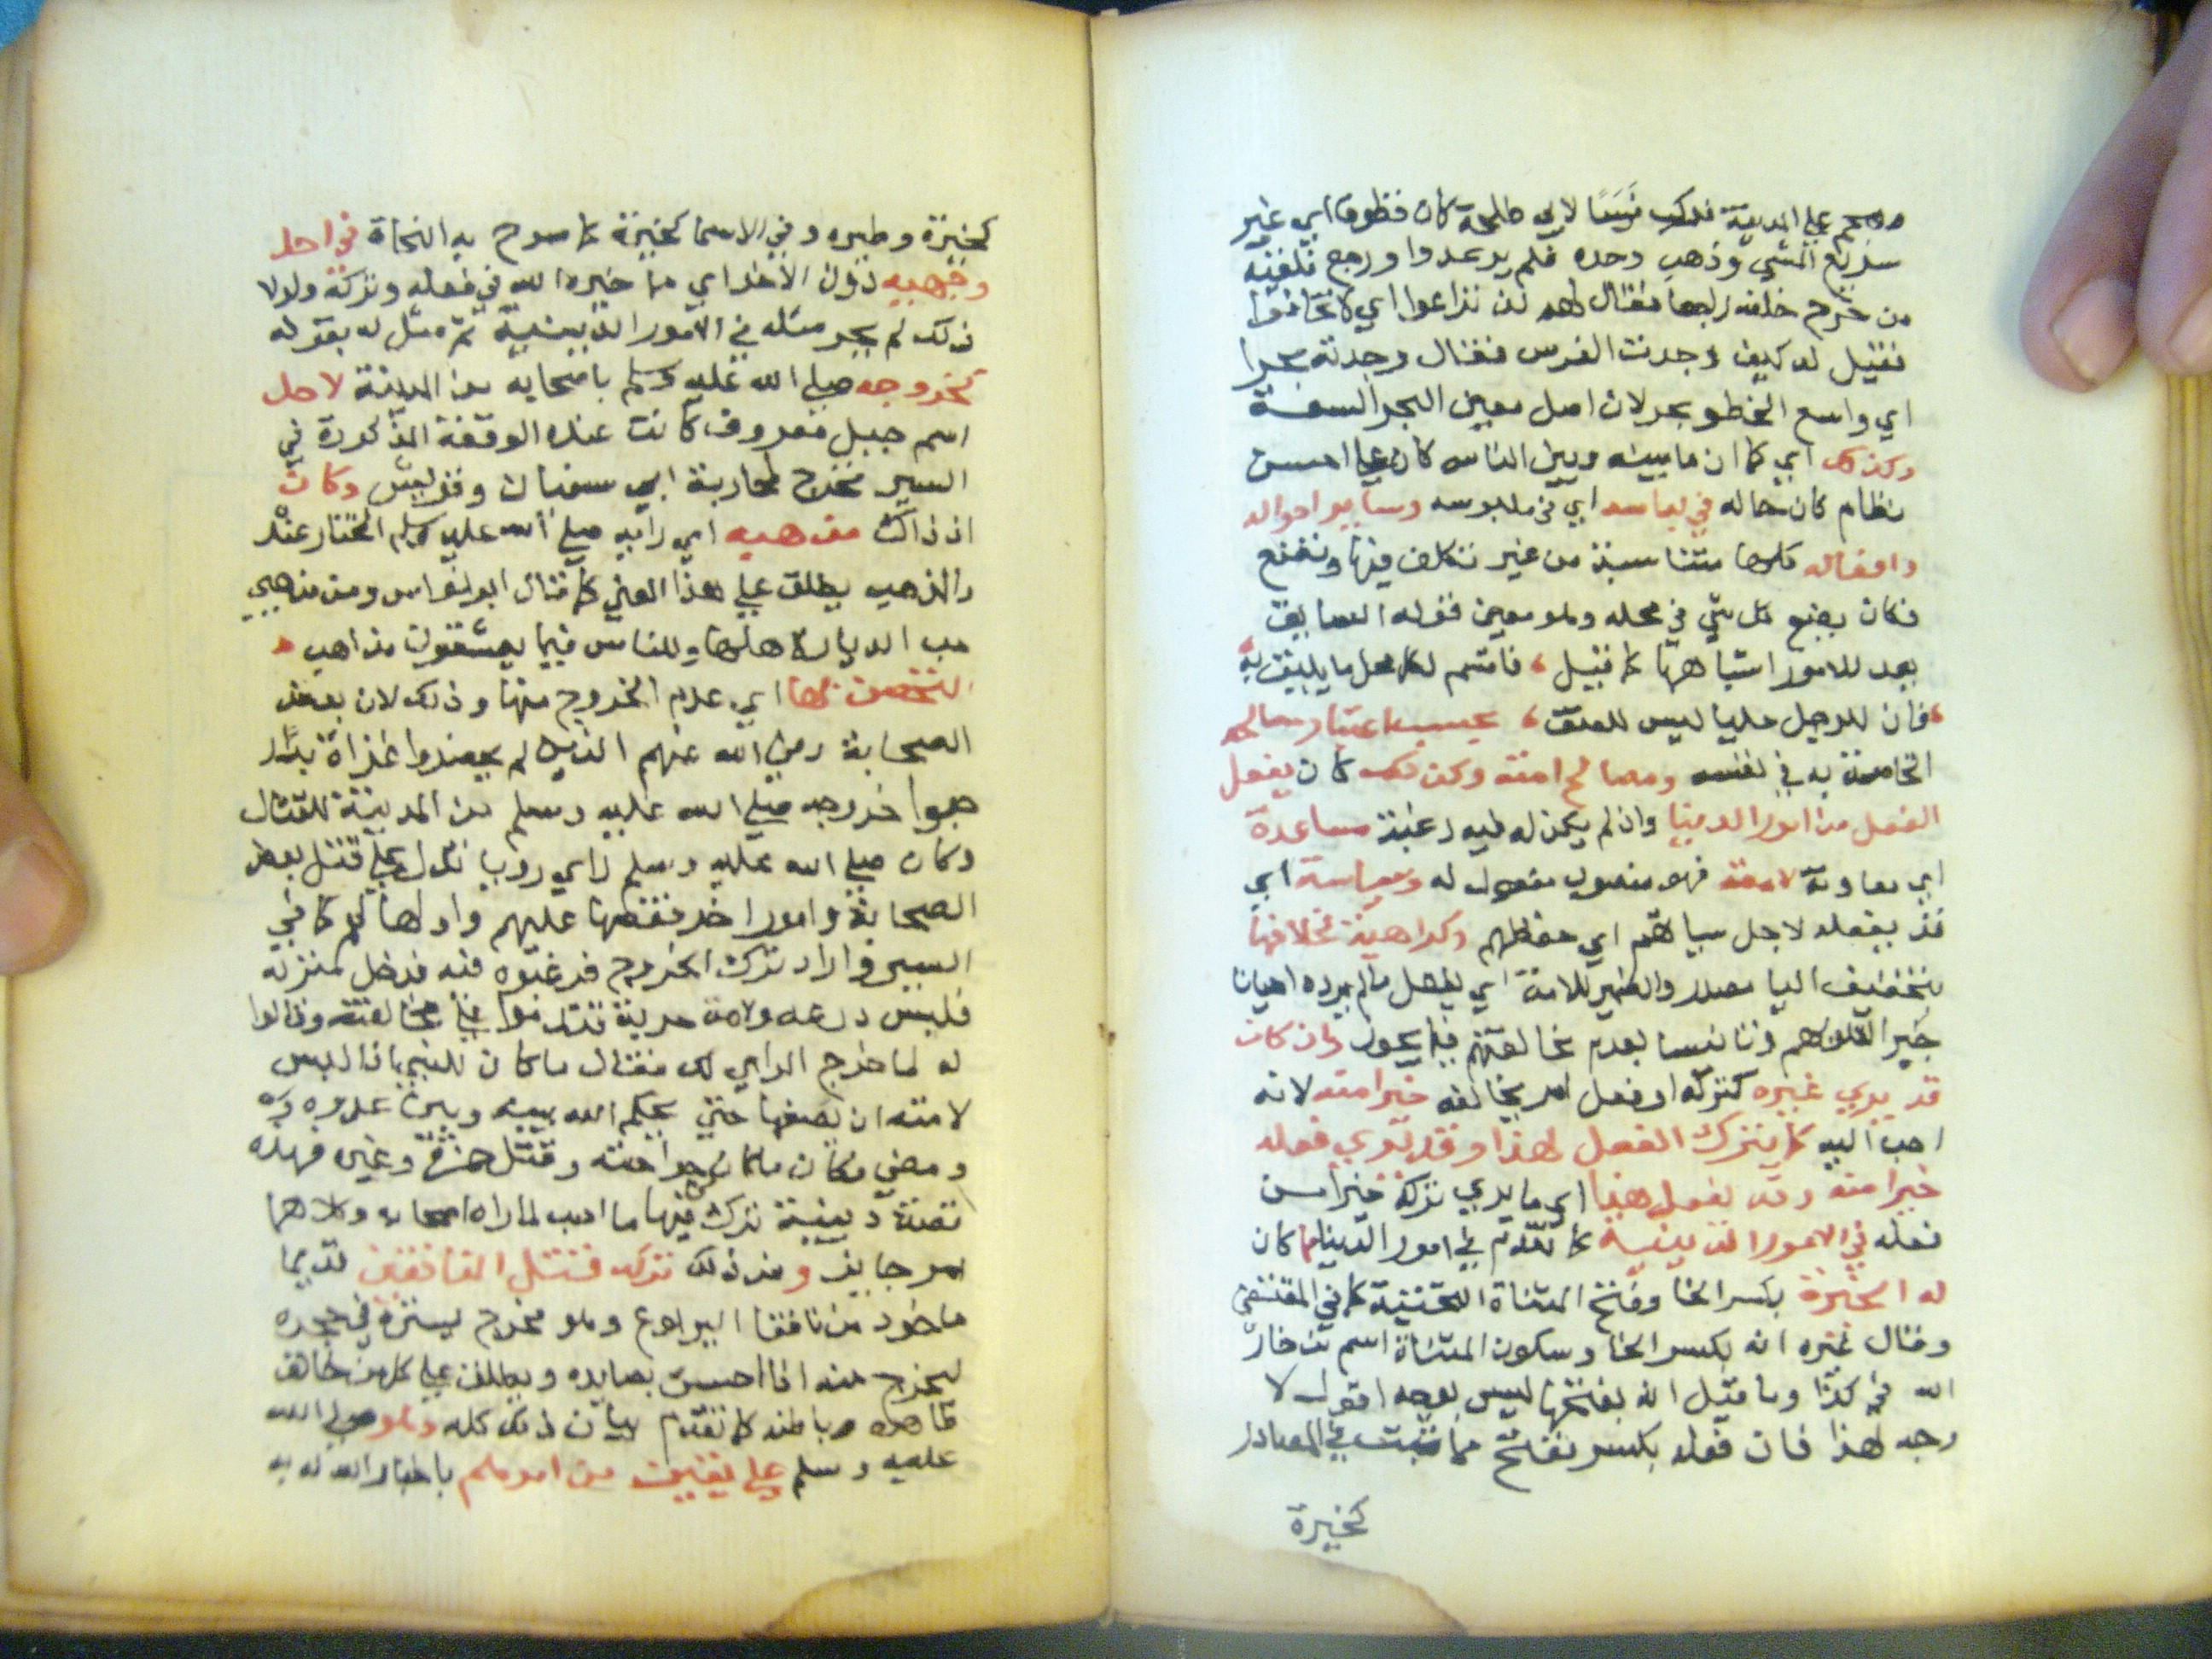 هجم علي المدينة فركب فرسًا لابي طلحة كان قطوفا اي غير
سريع المشي وذهب وحده فلم ير عدوا ورجع فلقيه
من خرج خلفه راجعا فقال لهم لن تراعوا اي لا تخافوا
فقيل له كيف وجدت الفرس فقال وجدته بحرا
اي واسع الخطو بحر لان اصل معين البحر السعة
وكذلك اي كما ان ما بينه وبين الناس كان علي احسن
نظام كان حاله في لباسه اي في ملبوسه وساير احواله
وافعاله كلها متناسبة من غير تكلف فيها وتصنع
فكان يضع كل شي في محله وهو معين قوله السابق
بعد للامور اشباهها كما قيل ، فاقسم لكل محل ما يليق به
، فان للرجل حليا ليس للعنق ، بحسب اعتبار مصالحه
الخاصة به في نفسه ومصالح امته وكذلك كان يفعل
الفعل من امور الدنيا وان لم يكن له فيه رغبة مساعدة
اي معاونة لامته فهو منصوب مفعول له وسياسة اي
قد يفعله لاجل سياستهم اي حفظهم وكراهية لخلافها
بتخفيف اليا مصدر والضمير للامة اي يفعل ما لم يرده احيانا
جبرا لقلوبهم وتانيسا بعدم مخالفتهم فيما يجوز وان كان
قد يري غيره كتركه او فعل امر يخالفه خيرا منه لانه
احب اليه كما يترك الفعل لهذا وقد يري فعله
خيرا منه وقد يفعل هذا اي ما يري تركه خيرا من
فعله في الامور الدينية كما تقدم في امور الدنيا مما كان
له الخيرة بكسر الخا وفتح المثناة التحتية كما في المقتفي
وقال غيره انه بكسر الخا وسكون المثناة اسم من خار
الله في كذا وما قيل انه بفتحها ليس بوجه اقول لا
وجه لهذا فان فعله بكسر ففتح مما ثبت في المصادر
كخيرة
كخيرة وطيره وفي الاسما كخيرة كما صرح به النحاة في احد
وجهيه دون الاخر اي ما خيره الله في فعله وتركه ولولا
ذلك لم يجر مثله في الامور الدينية ثم مثل له بقوله
كخروجه صلي الله عليه وسلم باصحابه من المدينة لاحد
اسم جبل معروف كانت عنده الوقعة المذكورة في
السير فخرج لمحاربة ابي سفيان وقريش وكان
اذ ذاك مذهبه اي رايه صلي الله عليه وسلم المختار عنده
والمذهب يطلق علي هذا المعني كما قال ابو نواس ومن مذهبي
حب الديار لاهلها وللناس فيما يعشقون مذاهب
التحصن بها اي عدم الخروج منها وذلك لان بعض
الصحابة رضي الله عنهم الذين لم يحضروا غزاة بدر
حبوا خروجه صلي الله عليه وسلم من المدينة للقتال
وكان صلي الله عليه وسلم راي رويا تدل علي قتل بعض
الصحابة وامورا اخر فقصها عليهم واولها لهم كما في
السير واراد ترك الخروج فرغبوه فيه فدخل منزله
فلبس درعه ولامة حربه فندموا علي مخالفته وقالوا
له لما خرج الراي لك فقال ما كان للنبي اذا لبس
لامته ان يضعها حتي يحكم الله بينه وبين عدوه
ومضي فكان ما كان من جراحته وقتل حمزة وغيره فهذه
قصة دينية ترك فيها ما احب لما راه اصحابه وكلاهما
امر جايز ومن ذلك تركه قتل المنافقين قديما
ماخوذ من نافقا اليربوع وهو مخرج يستره في جحره
ليخرج منه اذا احس بصايده ويطلق علي كل من خالف
ظاهره وباطنه كما تقدم بيان ذلك كله وهو صلي الله
عليه وسلم علي يقين من امرهم باخبار الله له به